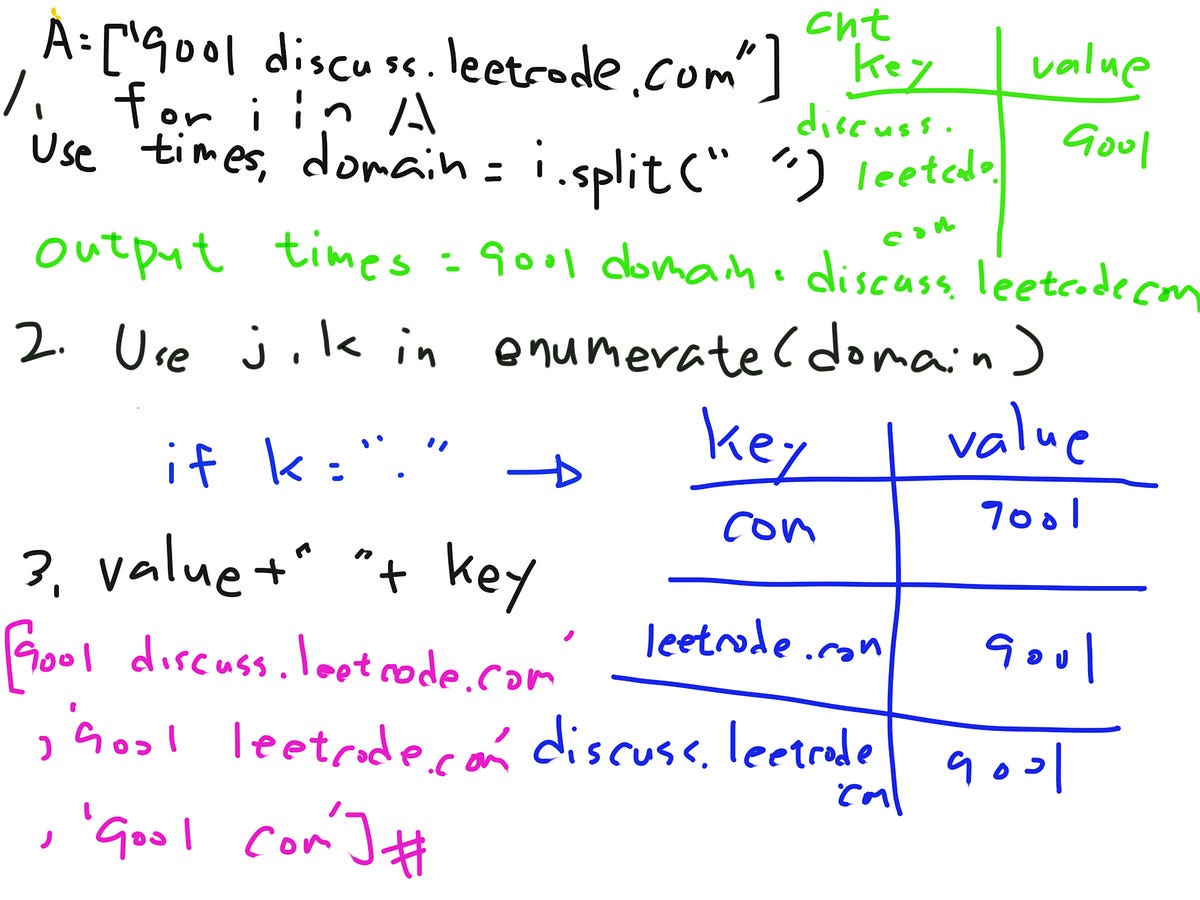 A=["9001 discuss.leetcode.com"]
1. for i in A
Use times, domain = i.split(" ")
cnt
key value
discuss.
leetcode.
com
9001
output times = 9001 domain = discuss.leetcode.com
2. Use j,k in enumerate(domain)
if k = "." →
key value
com 9001
leetcode.com 9001
discuss.leetcode
.com
9001
3, value+" "+ key
[9001 discuss.leetcode.com'
, '9001 leetcode.com'
, '9001 com']#